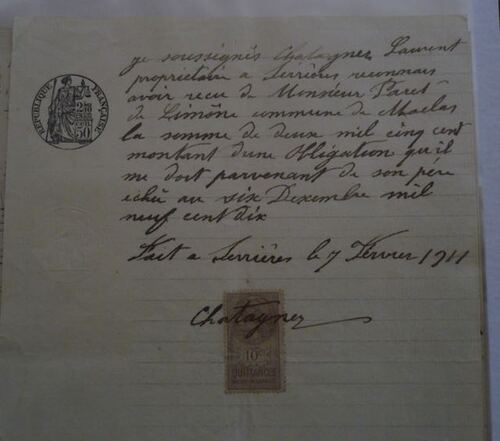 je soussignés Chatagner Laurent
propriétaire a Serrières reconnais
avoir recu de Monsieur Paret
de Limône commune de Maclas
la somme de deux mil cinq cent
montant d'une Obligation qu'il
me doit parvenant de son père
échu au six Dexembre mil
neuf cent dix
Fait a Serrières le 7 Février 1911
Chatagner
RÉPUBLIQUE FRANÇAISE
50
10c
QUITTANCES